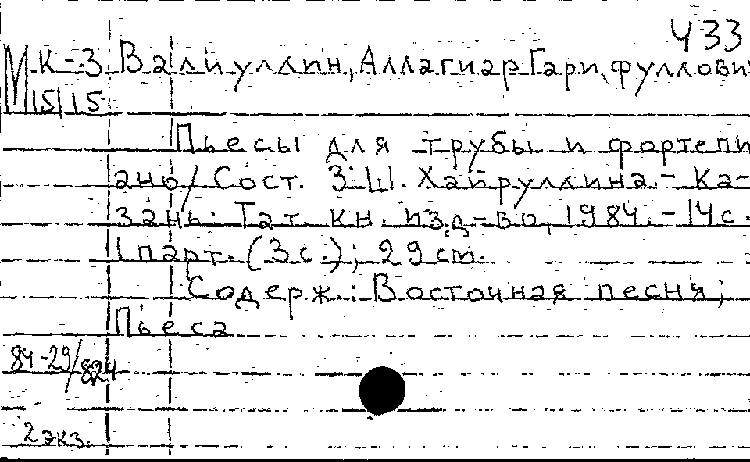 433
М К-3 Валиуллин, Аллагиар Гарифуллови
15115
Пьесы для трубы и фортепи
ано/ Сост. З.Ш. Хайруллина.- Ка-
зань: Тат. кн. изд-во, 1984.-14с.
1 парт. (3с.); 29 cm.
Содерж.: Восточная песня;
Пьеса
84-29/824
2 экз.